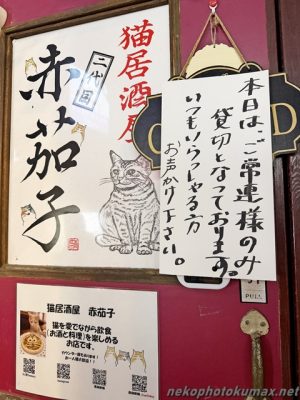 猫居酒屋
二代目
赤茄子
本日は、ご常連様のみ
貸切となっております。
いつもいらっしゃる方
お声かけ下さい。
PULL
猫居酒屋 赤茄子
猫を愛でながら飲食
(お酒と料理)を楽しめる
お店です。
nekophotokumax.net